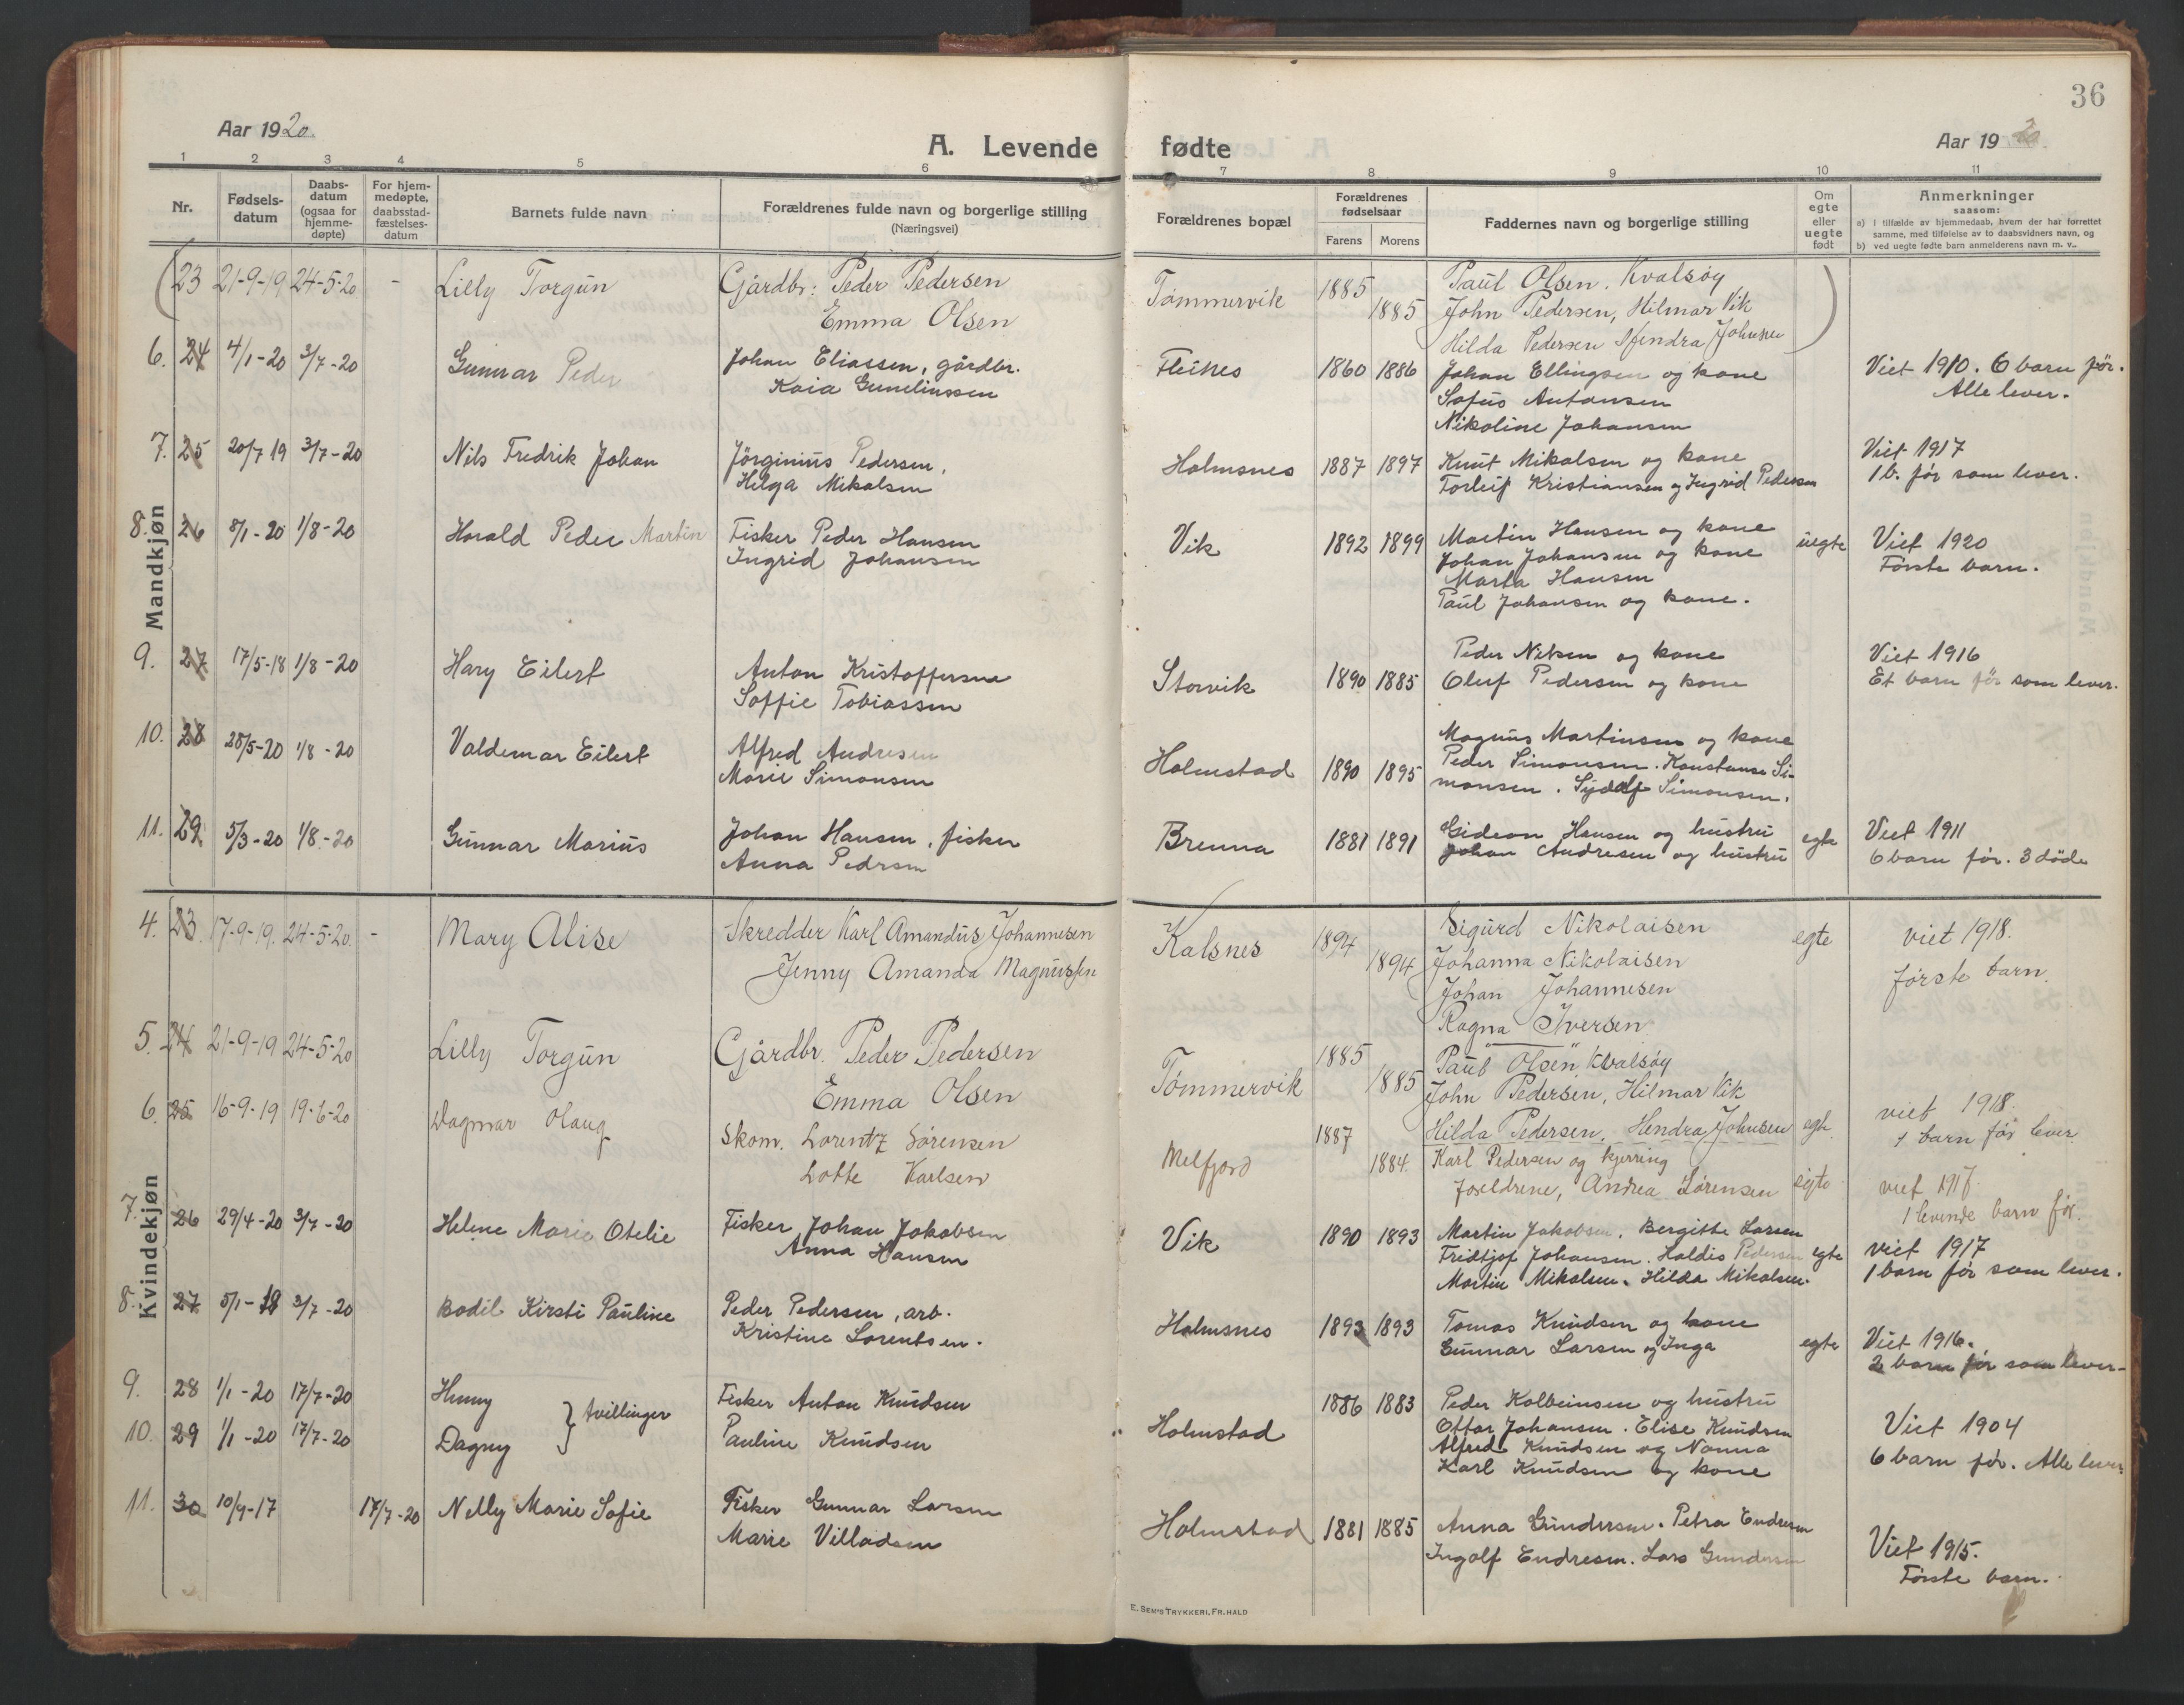 36
Aar 1920
A. Levende fødte
Aar 1920
1 2 3 4 5 6 7 8 9 10 11
Nr.
Fødsels-
datum
Daabs-
datum
(ogsaa for
hjemme-
døpte)
For hjem-
medøpte,
daabsstad-
fæstelses-
datum
Barnets fulde navn
Forældrenes fulde navn og borgerlige stilling
(Næringsvei)
Forældrenes bopæl
Forældrenes
fødselsaar
Farens Morens
Faddernes navn og borgerlige stilling
Om
egte
eller
uegte
født
Anmerkninger
saasom:
a) i tilfælde av hjemmedaab, hvem der har forrettet
samme, med tilføielse av to daabsvidners navn, og
b) ved uegte fødte barn anmelderens navn m. v..
Mandkjøn
(23 21-9-19 24-5-20 - Lilly Torgun Gårdbr: Peder Pedersen
Emma Olsen
Tømmervik 1885 1885 Paul Olsen. Kvalsøy
John Pedersen, Hilmar Vik
Hilda Pedersen Hendra Johnsen)
6. 24 4/1-20 3/7-20 Gunnar Peder Johan Eliassen, gårdbr.
Kaia
Fleines 1860 1886 Johan Ellingsen og kone
Sofus Antonsen
Nikoline Johansen
Viet 1910. 6 barn før.
Alle lever.
7. 25 20/7 19 3/7-20 Nils Fredrik Johan Jörginius Pedersen,
Helga Mikalsen
Holmsnes 1887 1897 Knut Mikalsen og kone
Torleif Kristiansen og Ingrid Pedersen
Viet 1917
1 b. før som lever.
8. 26 8/1-20 1/8-20 Harald Peder Martin Fisker Peder Hansen
Ingrid Johansen
Vik 1892 1899 Martin Hansen og kone
Johan Johansen og kone
Marta Hansen
Paul Johansen og kone.
uegte Viet 1920
Første barn.
9. 27 17/5-18 1/8-20 Hary Eilert Anton Kristoffersen
Soffie Tobiassen
Storvik 1890 1885 Peder Nilsen og kone
Oluf Pedersen og kone
Viet 1916
Et barn før som lever.
10. 28 28/5-20 1/8-20 Valdemar Eilert Alfred Andresen
Marie Simonsen
Holmstad 1890 1895 Magnus Martinsen og kone
Peder Simonsen. Konstanse Si-
monsen. Simonsen.
11. 29 5/3-20 1/8-20 Gunnar Marius Johan Hansen, fisker
Anna Pedrsen
Brenna 1881 1891 Gideon Hansen og hustru
Johan Andresen og hustru
egte Viet 1911
6 barn før. 3 döde
Kvindekjøn
4. 23. 17-9-19. 24-5-20. - Mary Alise Skredder Karl Amandus Johannesen
Jenny Amanda Magnussen
Kalsnes 1894 1894 Sigurd Nikolaisen
Johanna Nikolaisen
Johan Johannesen
Ragna Iversen
egte viet 1918.
første barn.
5. 24 21-9-19 24-5-20 Lilly Torgun Gårdbr. Peder Pedersen
Emma Olsen
Tømmervik 1885 1885 Paul Olsen, Kvalsøy
John Pedersen, Hilmar Vik
Hilda Pedersen, Hendra Johnsen
egte viet 1918.
1 barn før lever
6. 25 16-9-19 19-6-20 Dagmar Olaug Skom. Lorentz Sørensen
Lotte Karlsen
Melfjord 1887 1884 Karl Pedersen og kjerring
foreldrene, Andrea Sørensen
egte viet 1917.
1 levende barn før.
7. 26 29/4-20 3/7-20 Helene Marie Otelie Fisker Johan Jakobsen
Anna Hansen
Vik 1890 1893 Martin Jakobsen. Bergitte Larsen
Fridtjof Johansen. Haldis Pedersen
Martin Mikalsen. Hilda Mikalsen.
egte viet 1917
1 barn før som lever.
8. 27 5/1-19 3/7-20 Bodil Kirsti Pauline Peder Pedersen, arb.
Kristine Lorentsen.
Holmsnes 1893 1893 Tomas Knudsen og kone
Gunnar Larsen og Inga
egte Viet 1916.
2 barn før som lever-
9. 28 1/1-20 17/7-20 Henny } tvillinger Fisker Anton Knudsen
10. 29 1/1-20 17/7-20 Dagny Pauline Knudsen
Holmstad 1886 1883 Peder Kolbeinsen og hustru
Ottar Johansen. Elise Knudsen
Alfred Knudsen og Nanna
Karl Knudsen og kone
Viet 1904
6 barn før. Alle lever
11. 30 10/9-17 17/7-20 Nelly Marie Sofie Fisker Gunnar Larsen
Marie Villadsen
Holmstad 1881 1885 Anna Gundersen. Petra Endresen
Ingolf Endresen. Lars Gundersen
Viet 1915.
Første barn.
E. SEM'S TRYKKERI, FR.HALD